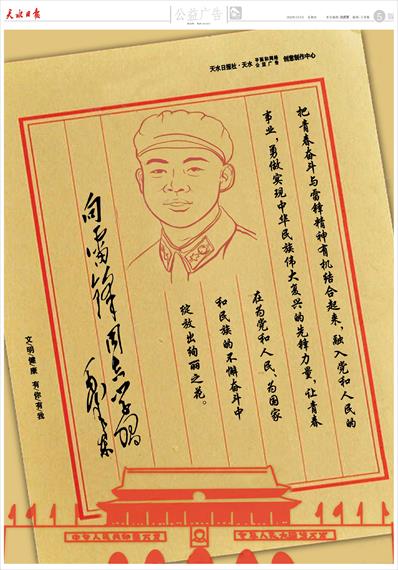 天水日报
公益广告
5
天水日报社·天水 平面和网络公益广告 创意制作中心
把青春奋斗与雷锋精神有机结合起来，融入党和人民的
事业，勇做实现中华民族伟大复兴的先锋力量，让青春
在为党和人民、为国家
和民族的不懈奋斗中
绽放出绚丽之花。
向雷锋同志学习
毛泽东
文明健康 有你有我
中华人民共和国万岁
世界人民大团结万岁